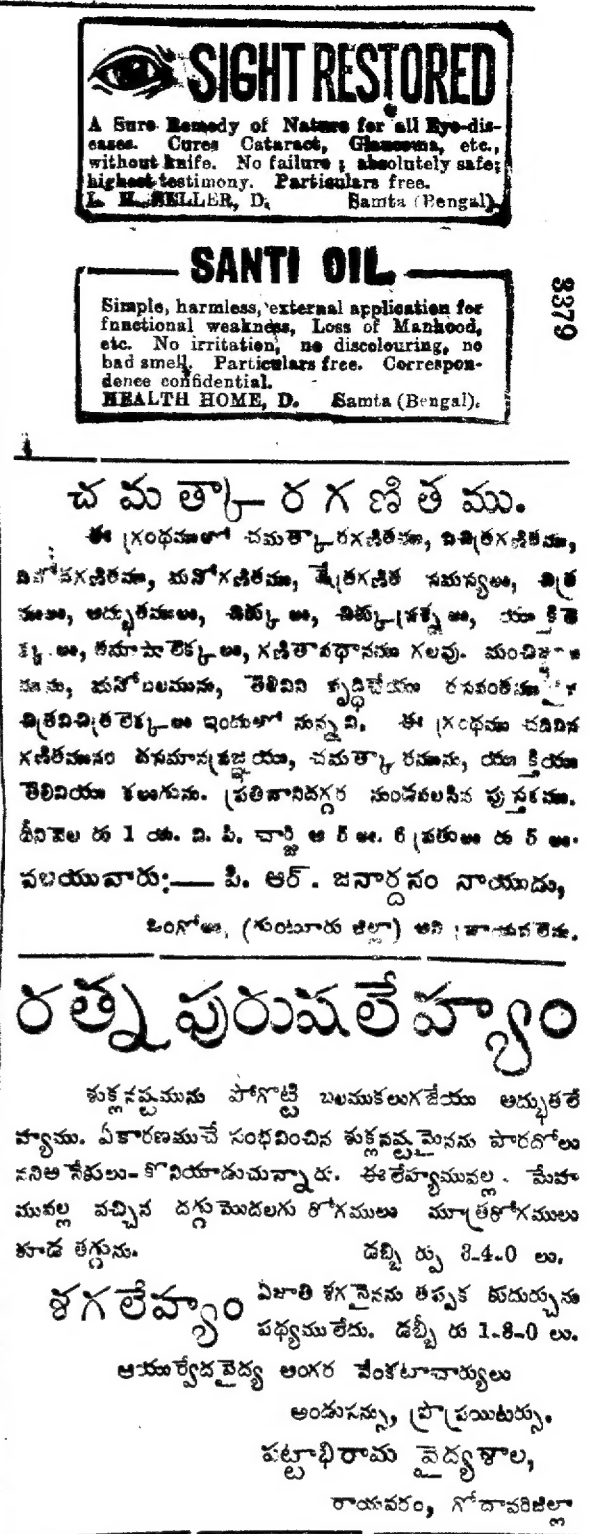 SIGHT RESTORED
A Sure Remedy of Nature for all Eye-dis-
eases. Cures Cataract, Glaucoma, etc.,
without knife. No failure ; absolutely safe;
highest testimony. Particulars free.
SELLER, D. Samta (Bengal).
SANTI OIL
Simple, harmless, external application for
functional weakness, Loss of Manhood,
etc. No irritation, no discolouring, no
bad smell. Particulars free. Correspon-
dence confidential.
HEALTH HOME, D. Samta (Bengal).
3379
చమత్కారగణితము.
ఈ గ్రంథములో చమత్కారగణితము, విచిత్రగణితము,
వినోదగణితము, మనోగణితము, క్షేత్రగణిత సమస్యలు, చిత్ర
అద్భుతములు, చిక్కులు, చిక్కుప్రశ్నలు,
తమాషాలెక్కలు, గణితావధానము గలవు. మంచి
మనోబలమును, తెలివిని వృద్ధిచేయు రసవంతము
చిత్రవిచిత్రలెక్కలు ఇందులో నున్నవి. ఈ గ్రంథము చదివిన
గణితమునం దసమానప్రజ్ఞయు, చమత్కారమును, యుక్తియు
తెలివియు కలుగును. ప్రతివానిదగ్గర నుండవలసిన పుస్తకము.
దీనివెల రు 1 యి. వి. పి. చార్జి ఆ 5 లు. 6 ప్రతులు రు 5 లు.
వలయువారు:— పి. ఆర్. జనార్దనం నాయుడు,
ఒంగోలు, (గుంటూరు జిల్లా) అని వ్రాయవలెను.
రత్న పురుషలేహ్యం
శుక్లనష్టమును పోగొట్టి బలముకలుగజేయు అద్భుతలే
హ్యము. ఏకారణముచే సంభవించిన శుక్లనష్టమైనను పారదోలు
నని అనేకులు కొనియాడుచున్నారు. ఈలేహ్యమువల్ల మేహ
మువల్ల వచ్చిన దగ్గుమొదలగు రోగములు మూత్రరోగములు
కూడ తగ్గును. డబ్బి ర్పు 3-4-0 లు.
శగలేహ్యం ఏజాతి శగనైనను తప్పక కుదుర్చును
పథ్యములేదు. డబ్బీ రు 1-8-0 లు.
ఆయుర్వేదవైద్య అంగర వేంకటాచార్యులు
అండుసన్సు, ప్రొప్రయిటర్సు.
పట్టాభిరామ వైద్యశాల,
రాయవరం, గోదావరిజిల్లా